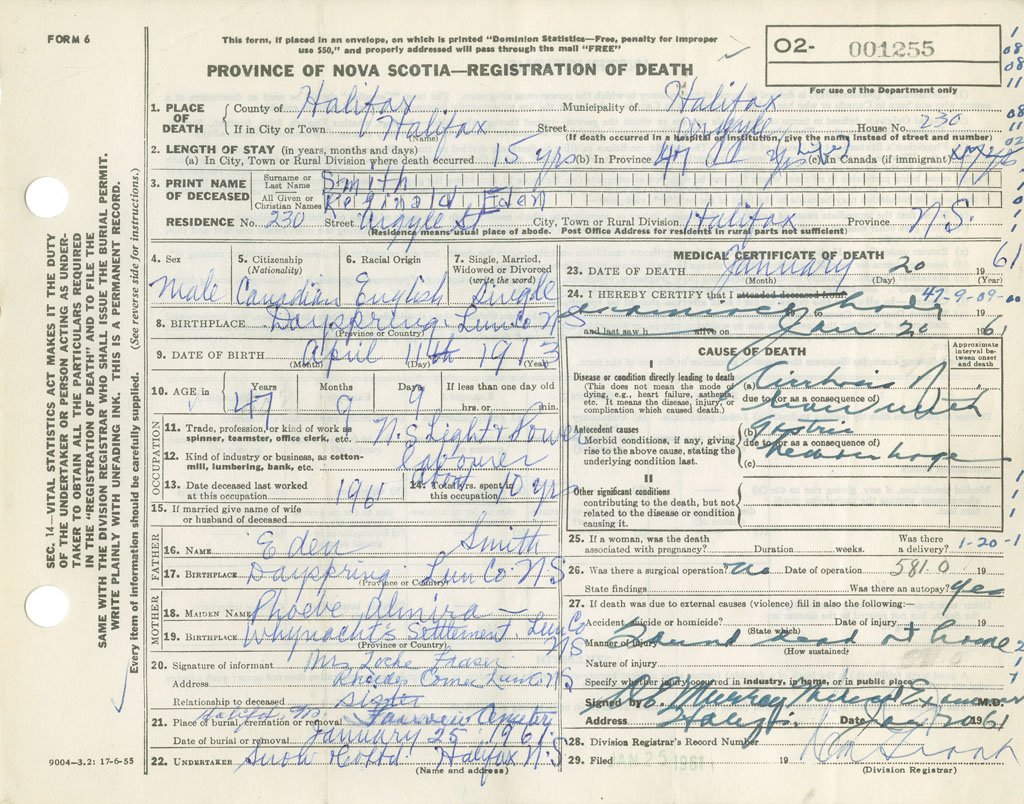 FORM 6
This form, if placed in an envelope, on which is printed "Dominion Statistics—Free, penalty for improper
use $50," and properly addressed will pass through the mail "FREE"
PROVINCE OF NOVA SCOTIA—REGISTRATION OF DEATH
02- 001255
For use of the Department only
SEC. 14—VITAL STATISTICS ACT MAKES IT THE DUTY
OF THE UNDERTAKER OR PERSON ACTING AS UNDER-
TAKER TO OBTAIN ALL THE PARTICULARS REQUIRED
IN THE "REGISTRATION OF DEATH" AND TO FILE THE
SAME WITH THE DIVISION REGISTRAR WHO SHALL ISSUE THE BURIAL PERMIT.
WRITE PLAINLY WITH UNFADING INK. THIS IS A PERMANENT RECORD.
Every item of information should be carefully supplied. (See reverse side for instructions.)
1. PLACE OF DEATH
County of Halifax Municipality of Halifax
If in City or Town Halifax Street Argyle House No. 230
(Name) (If death occurred in a hospital or institution, give the name instead of street and number)
2. LENGTH OF STAY (in years, months and days)
(a) In City, Town or Rural Division where death occurred 15 yrs (b) In Province 47 yrs (Life) (c) In Canada (if immigrant)
3. PRINT NAME OF DECEASED
Surname or Last Name Smith
All Given or Christian Names Reginald Eden
RESIDENCE No. 230 Street Argyle St City, Town or Rural Division Halifax Province N.S.
(Residence means usual place of abode. Post Office Address for residents in rural parts not sufficient)
4. Sex Male
5. Citizenship (Nationality) Canadian
6. Racial Origin English
7. Single, Married, Widowed or Divorced (write the word) Single
8. BIRTHPLACE Dayspring Lun Co NS
(Province or Country)
9. DATE OF BIRTH April 11th 1913
(Month) (Day) (Year)
10. AGE in Years 47 Months 9 Days 9 If less than one day old hrs. or min.
OCCUPATION
11. Trade, profession, or kind of work as spinner, teamster, office clerk, etc. N.S Light & Power
12. Kind of industry or business, as cotton-mill, lumbering, bank, etc. Labourer
13. Date deceased last worked at this occupation 1961
14. Total yrs. spent in this occupation 10 yrs
15. If married give name of wife or husband of deceased
FATHER
16. NAME Eden Smith
17. BIRTHPLACE Dayspring Lun Co NS
(Province or Country)
MOTHER
18. MAIDEN NAME Phoebe Almira —
19. BIRTHPLACE Whynacht's Settlement, Lun Co NS
(Province or Country)
20. Signature of informant Mrs Locke
Address Rhodes Corner Lun Co NS
Relationship to deceased Sister
21. Place of burial, cremation or removal Fairview Cemetery
Date of burial or removal January 25 1961
22. UNDERTAKER Snow Halifax N.S
(Name and address)
9004—3.2: 17-6-55
MEDICAL CERTIFICATE OF DEATH
23. DATE OF DEATH January 20 1961
(Month) (Day) (Year)
24. I HEREBY CERTIFY that I attended deceased from 47-9-09-00
examined body 19 to
and last saw h alive on Jan 20 1961
CAUSE OF DEATH
Approximate interval between onset and death
I
Disease or condition directly leading to death
(This does not mean the mode of dying, e.g., heart failure, asthenia, etc. It means the disease, injury, or complication which caused death.)
(a) Cirrhosis of
due to (or as a consequence of) liver with
Antecedent causes
Morbid conditions, if any, giving rise to the above cause, stating the underlying condition last.
(b) gastric
due to (or as a consequence of)
(c) hemorrhage
II
Other significant conditions
contributing to the death, but not related to the disease or condition causing it.
25. If a woman, was the death associated with pregnancy? Duration weeks. Was there a delivery? 1-20-1
26. Was there a surgical operation? No Date of operation 581.0 19
State findings Was there an autopsy? Yes
27. If death was due to external causes (violence) fill in also the following:—
Accident, suicide or homicide? Date of injury 19
(State which)
Manner of injury Found dead at home
(How sustained)
Nature of injury
Specify whether injury occurred in industry, in home, or in public place
Signed by D.E. Murray Medical Examiner M.D.
Address Halifax Date Jan 20 1961
28. Division Registrar's Record Number
29. Filed JAN 25 1961 19
(Division Registrar)